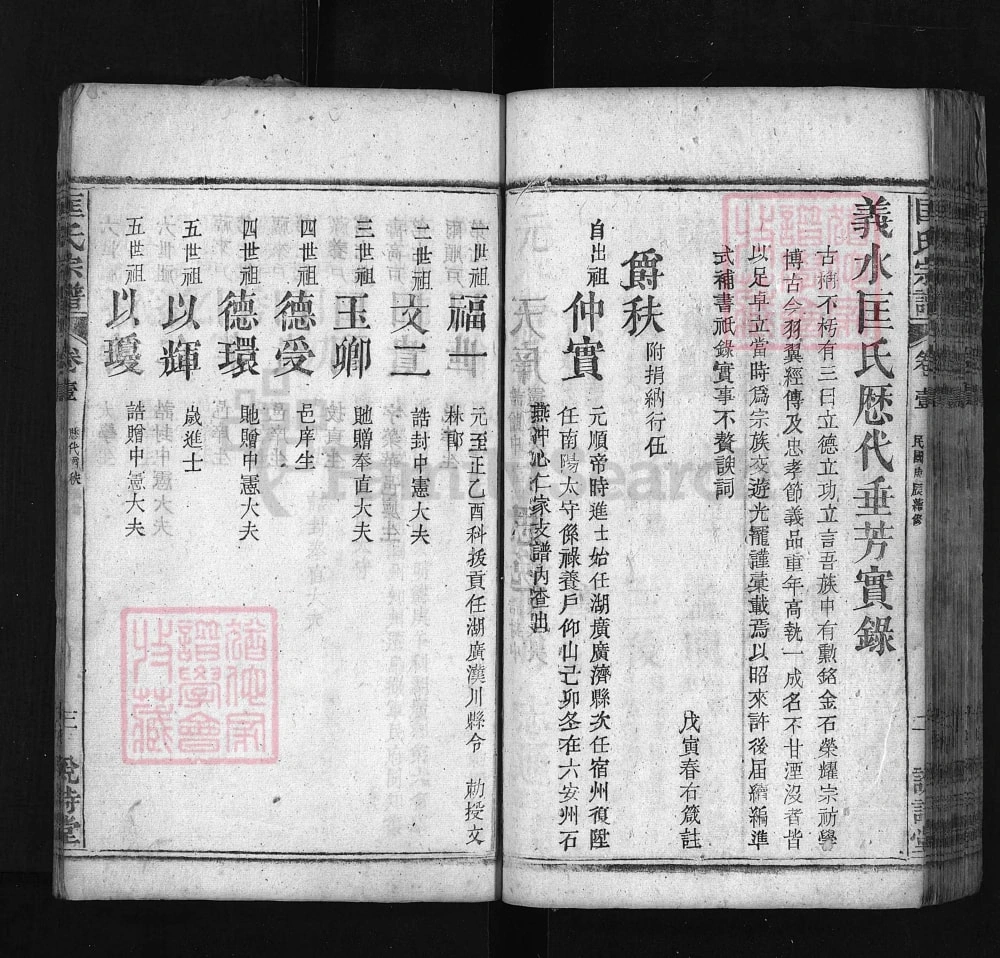 義水匡氏歷代垂芳實錄
古稱不朽有三曰立德立功立言吾族中有勳銘金石榮耀宗祊學
博古今羽翼經傳及忠孝節義品重年高執一成名不甘湮沒者皆
以足卓立當時爲宗族交遊光寵謹彙載焉以昭來許後屆續編準
式補書祇錄實事不贅諛詞
戊寅春右箴註
爵秩 附捐納行伍
自出祖 仲實 元順帝時進士始任湖廣廣濟縣次任宿州復陞
任南陽太守係祿養戶仰山己卯冬在六安州石
燕沖沁仁家支譜內查出
一世祖 福一 元至正乙酉科拔貢任湖廣漢川縣令 勅授文
林郎
二世祖 文二 誥封中憲大夫
三世祖 玉卿 貤贈奉直大夫
四世祖 德受 邑庠生
四世祖 德環 貤贈中憲大夫
五世祖 以輝 歲進士
五世祖 以瓊 誥贈中憲大夫
匡氏宗譜 卷壹 歷代爵秩 三 說詩堂
匡氏宗譜 卷壹 民國庚辰續修 二 說詩堂
FamilySearch